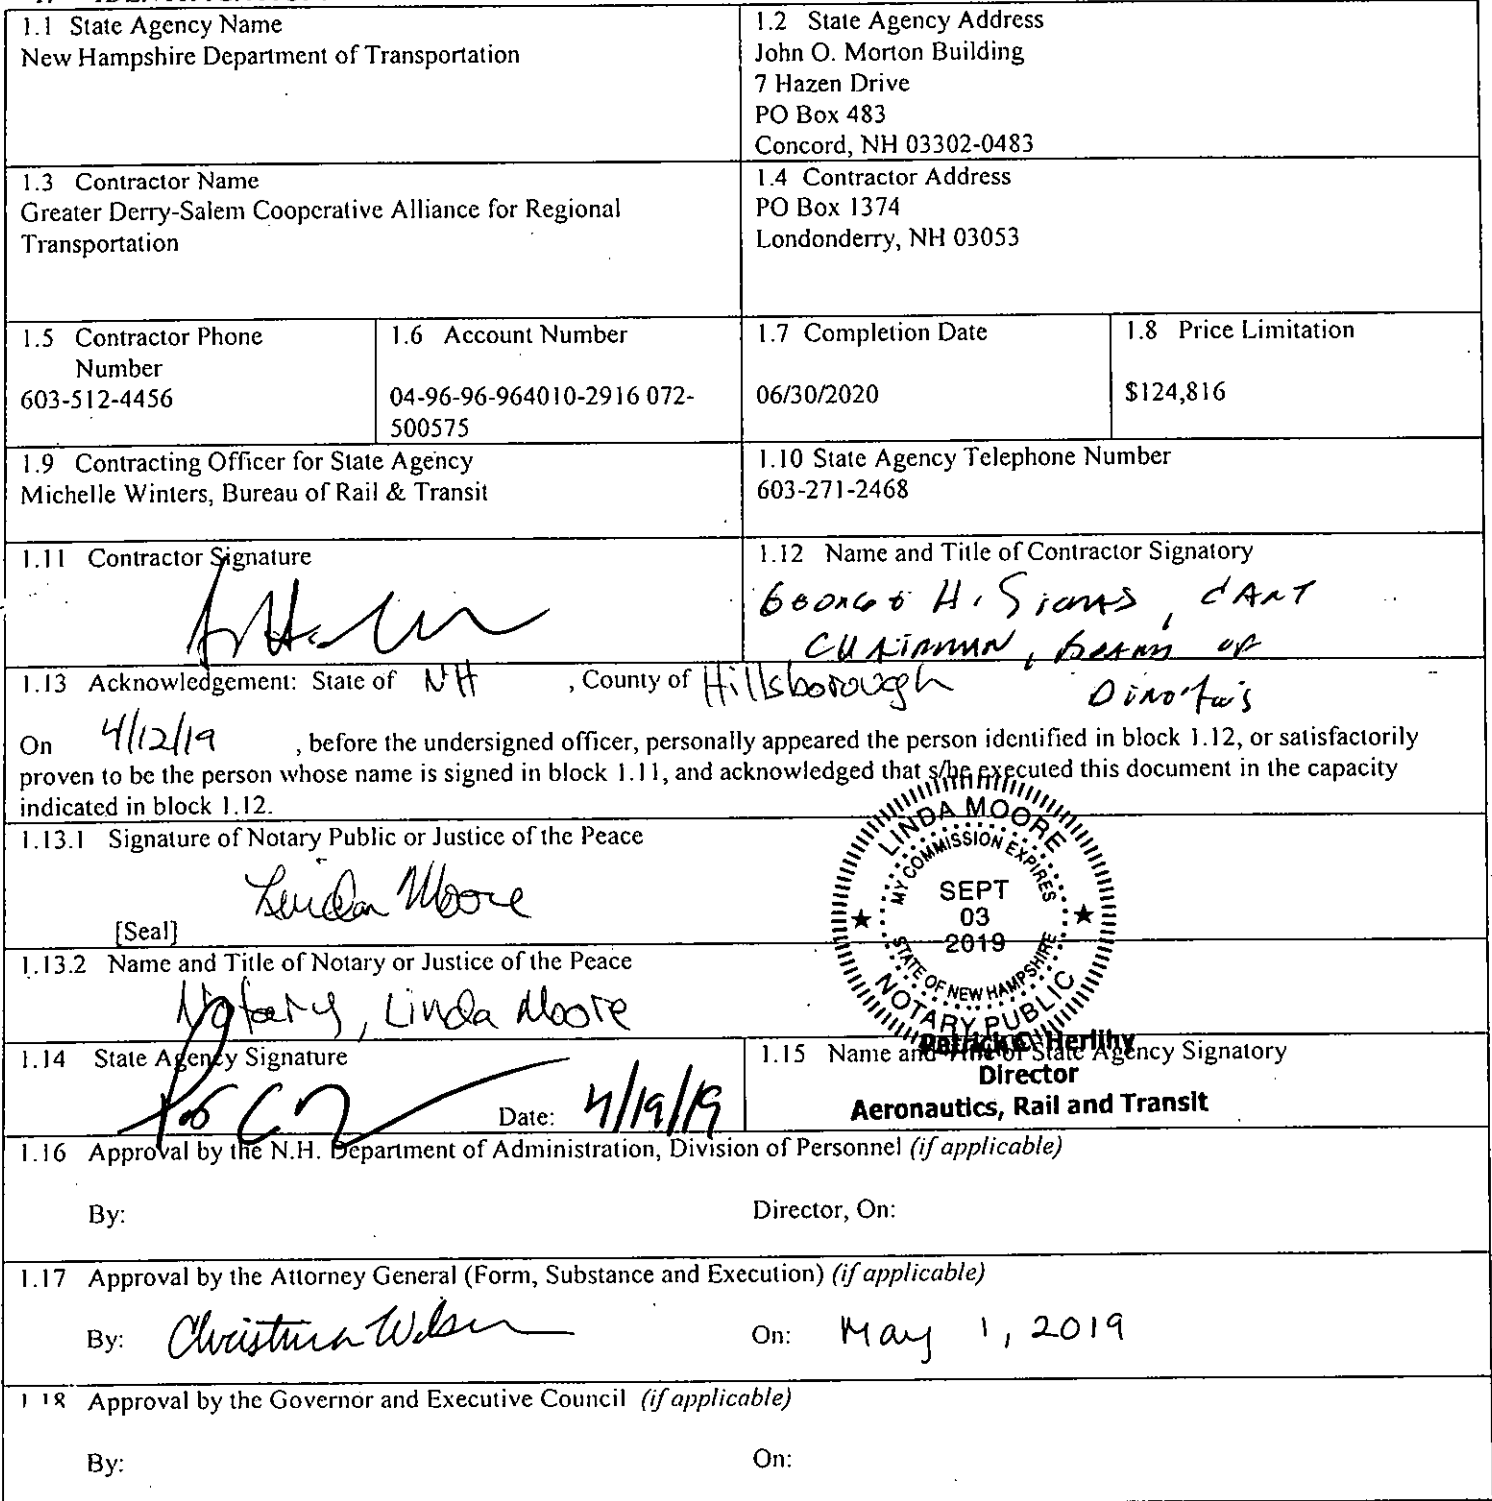 1.1 State Agency Name
New Hampshire Department of Transportation
1.2 State Agency Address
John O. Morton Building
7 Hazen Drive
PO Box 483
Concord, NH 03302-0483
1.3 Contractor Name
Greater Derry-Salem Cooperative Alliance for Regional
Transportation
1.4 Contractor Address
PO Box 1374
Londonderry, NH 03053
1.5 Contractor Phone
Number
603-512-4456
1.6 Account Number
04-96-96-964010-2916 072-
500575
1.7 Completion Date
06/30/2020
1.8 Price Limitation
$124,816
1.9 Contracting Officer for State Agency
Michelle Winters, Bureau of Rail & Transit
1.10 State Agency Telephone Number
603-271-2468
1.11 Contractor Signature
1.12 Name and Title of Contractor Signatory
George H. , CART
Chairman, Board of
Directors
1.13 Acknowledgement: State of NH , County of Hillsborough
On 4/12/19 , before the undersigned officer, personally appeared the person identified in block 1.12, or satisfactorily
proven to be the person whose name is signed in block 1.11, and acknowledged that s/he executed this document in the capacity
indicated in block 1.12.
1.13.1 Signature of Notary Public or Justice of the Peace
Linda Moore
[Seal]
LINDA MOORE
MY COMMISSION EXPIRES
SEPT
03
2019
STATE OF NEW HAMPSHIRE
NOTARY PUBLIC
1.13.2 Name and Title of Notary or Justice of the Peace
Notary, Linda Moore
1.14 State Agency Signature
Date: 4/19/19
1.15 Name and Title of State Agency Signatory
Patrick C. Herlihy
Director
Aeronautics, Rail and Transit
1.16 Approval by the N.H. Department of Administration, Division of Personnel (if applicable)
By:
Director, On:
1.17 Approval by the Attorney General (Form, Substance and Execution) (if applicable)
By: Christina Wilson
On: May 1, 2019
1.18 Approval by the Governor and Executive Council (if applicable)
By:
On: